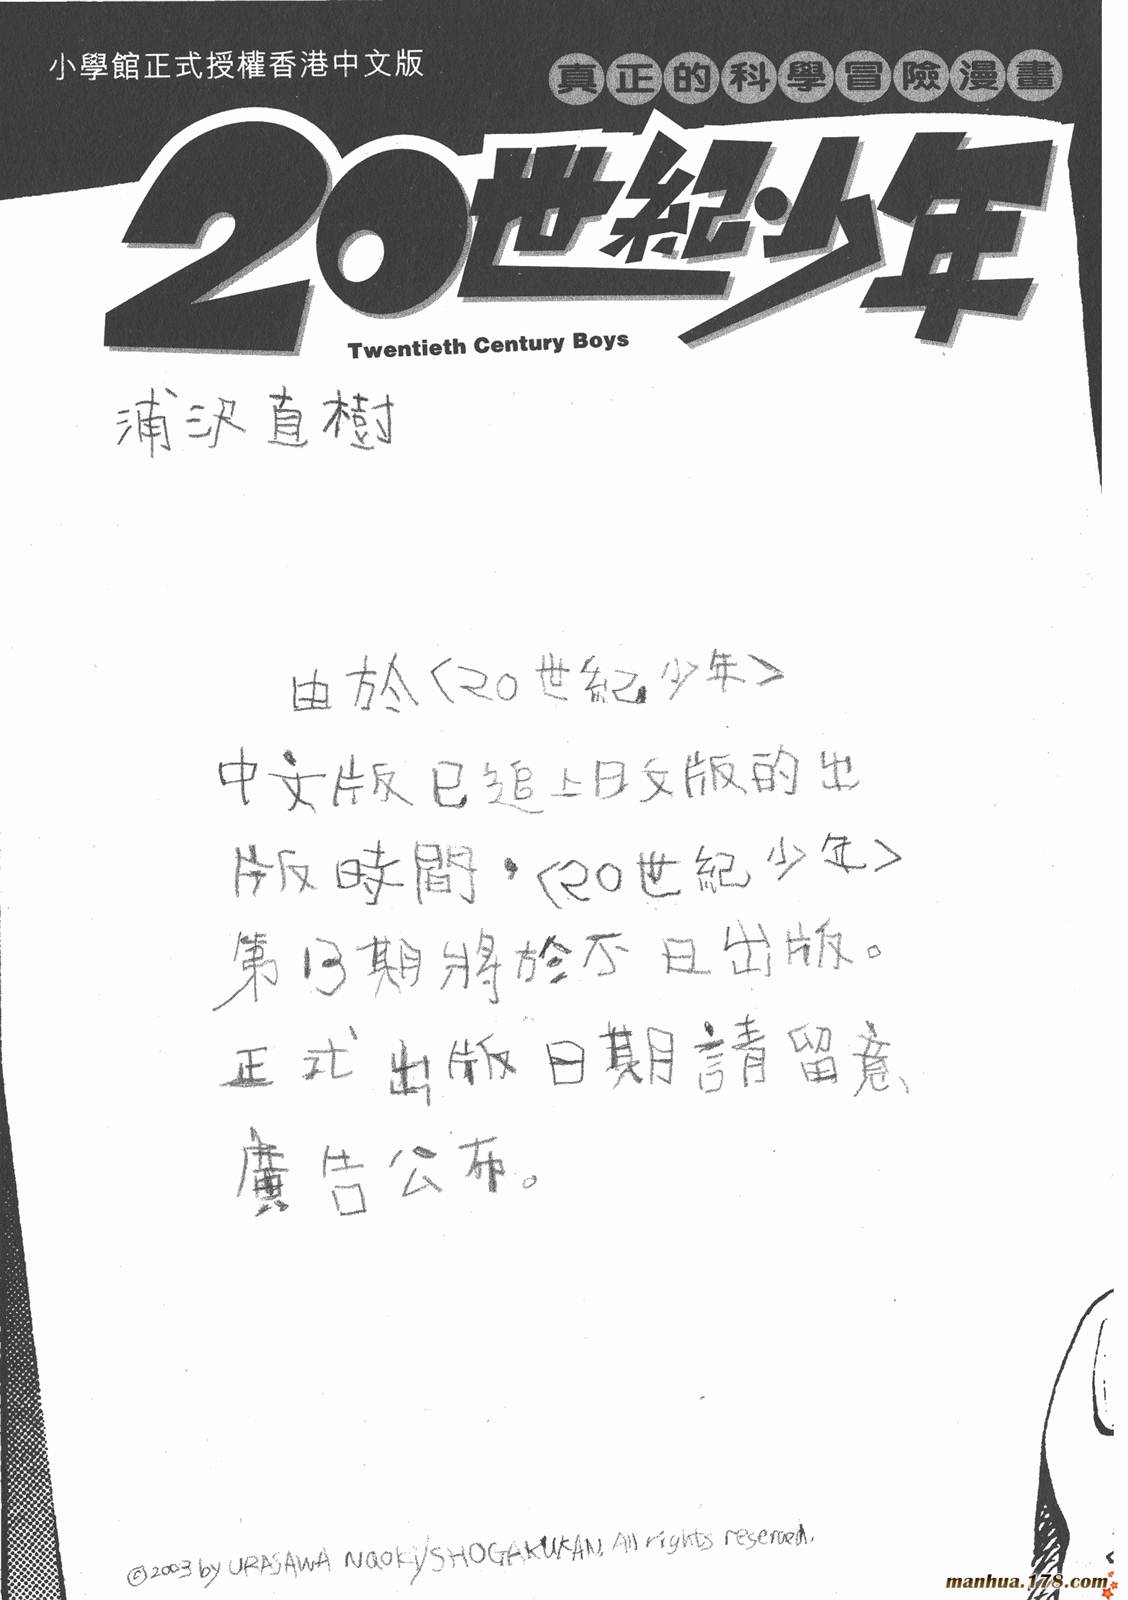 小學館正式授權香港中文版
真正的科學冒險漫畫
20世紀少年
Twentieth Century Boys
浦沢直樹
由於<20世紀少年>
中文版已追上日文版的出
版時間，<20世紀少年>
第13期將於不日出版。
正式出版日期請留意
廣告公布。
©2003 by URASAWA NAOKI/SHOGAKUKAN. All rights reserved.
manhua.178.com